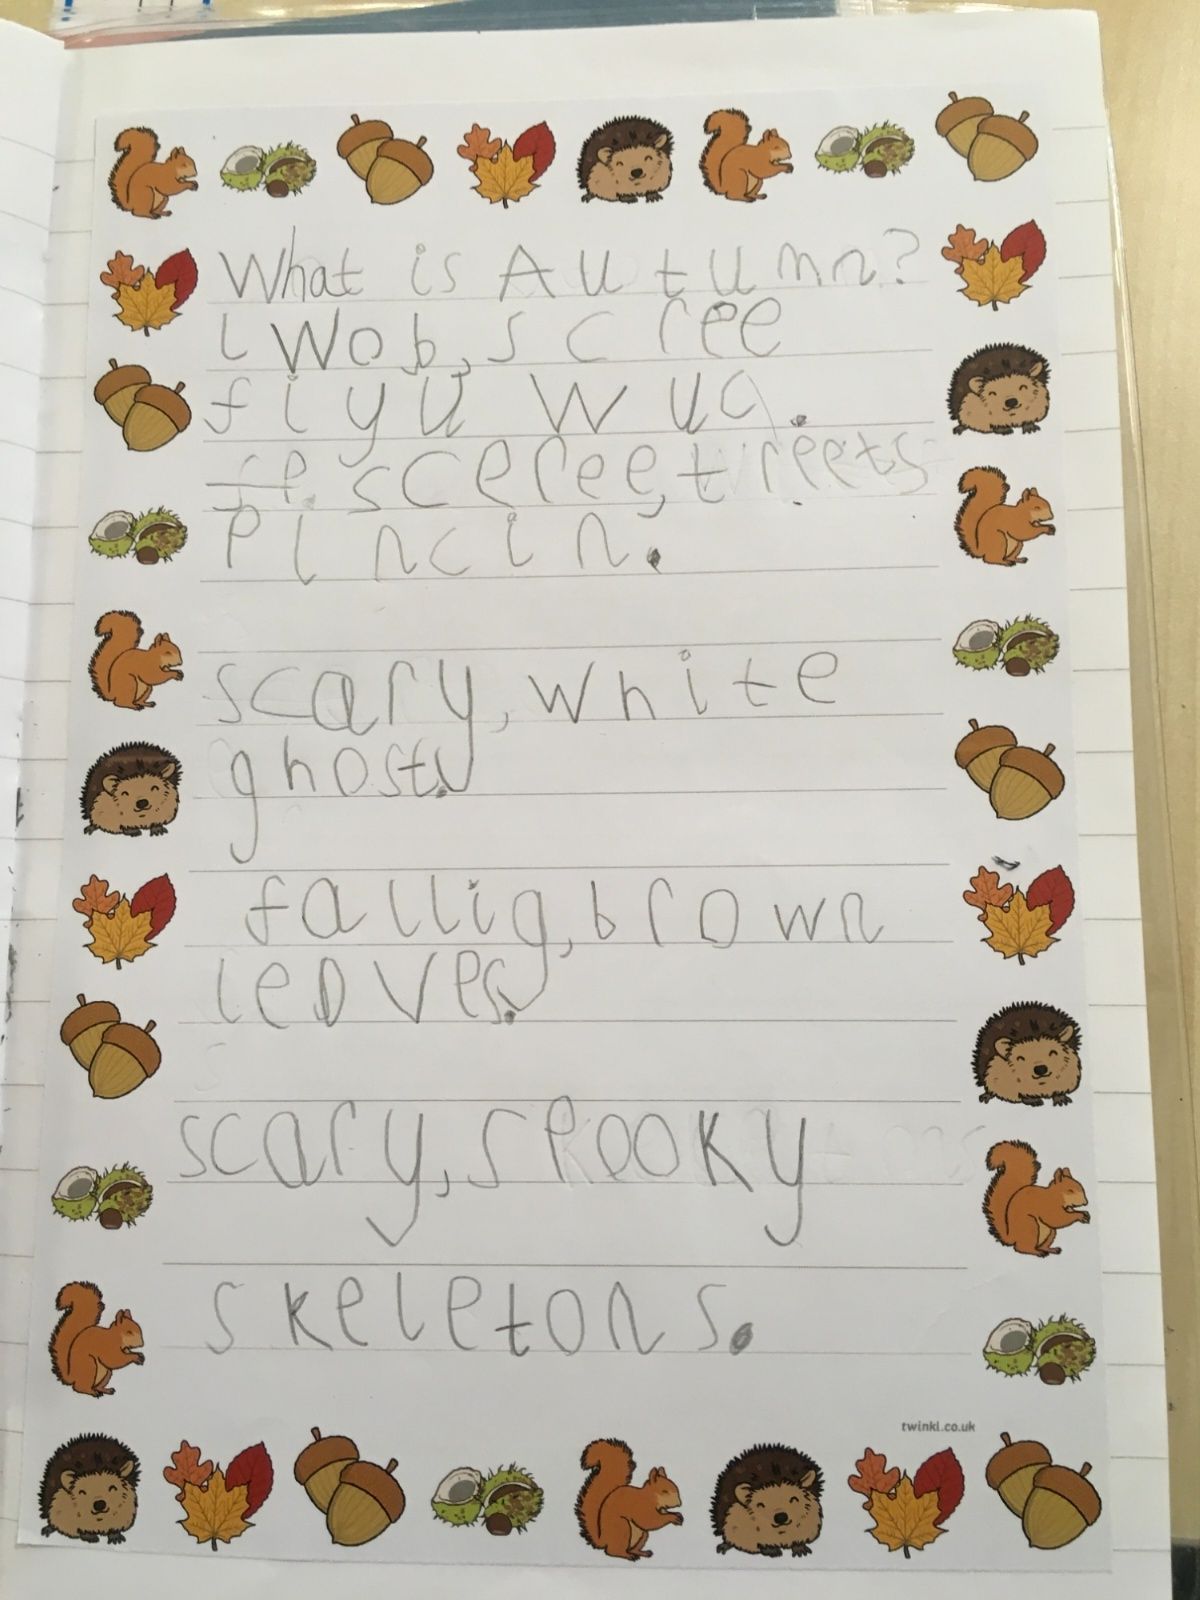 What is Autumn?
l Wob, scree
fiyu wua.
sceree, treets
Pincin.
scary, white
ghost.
fallig, brown
leaves.
scary, spooky
skeletons.
twinkl.co.uk